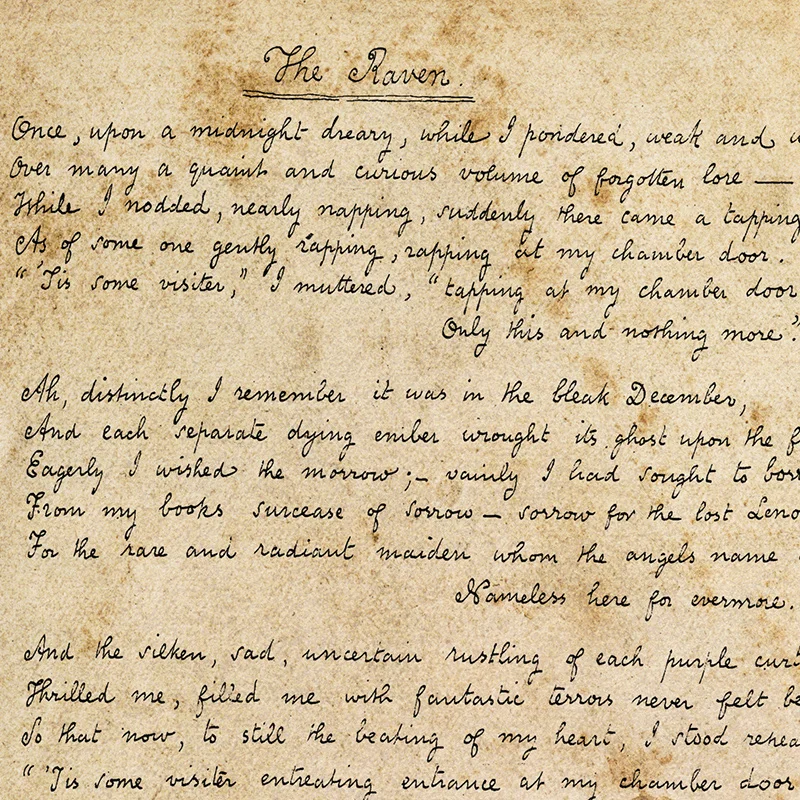 The Raven.
Once, upon a midnight dreary, while I pondered, weak and
Over many a quaint and curious volume of forgotten lore —
While I nodded, nearly napping, suddenly there came a tapping
As of some one gently rapping, rapping at my chamber door.
“'Tis some visiter,” I muttered, “tapping at my chamber door
Only this and nothing more.”
Ah, distinctly I remember it was in the bleak December,
And each separate dying ember wrought its ghost upon the f
Eagerly I wished the morrow; – vainly I had sought to borr
From my books surcease of sorrow – sorrow for the lost Leno
For the rare and radiant maiden whom the angels name
Nameless here for evermore.
And the silken, sad, uncertain rustling of each purple curt
Thrilled me, filled me with fantastic terrors never felt be
So that now, to still the beating of my heart, I stood repea
“'Tis some visiter entreating entrance at my chamber door